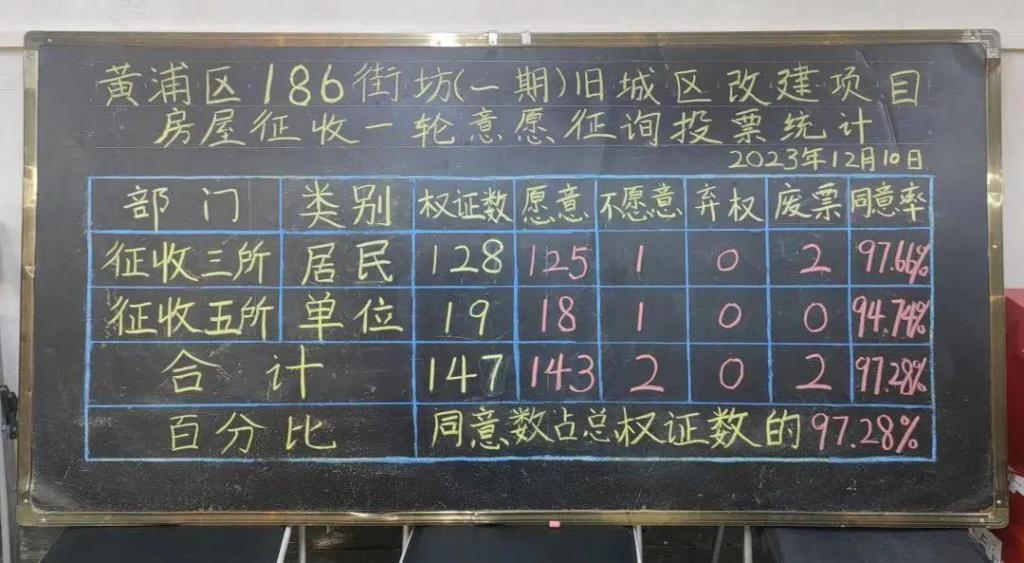 黄浦区186街坊(一期)旧城区改建项目
房屋征收一轮意愿征询投票统计
2023年12月10日
部门 类别 权证数 愿意 不愿意 弃权 废票 同意率
征收三所 居民 128 125 1 0 2 97.66%
征收五所 单位 19 18 1 0 0 94.74%
合计 147 143 2 0 2 97.28%
百分比 同意数占总权证数的97.28%